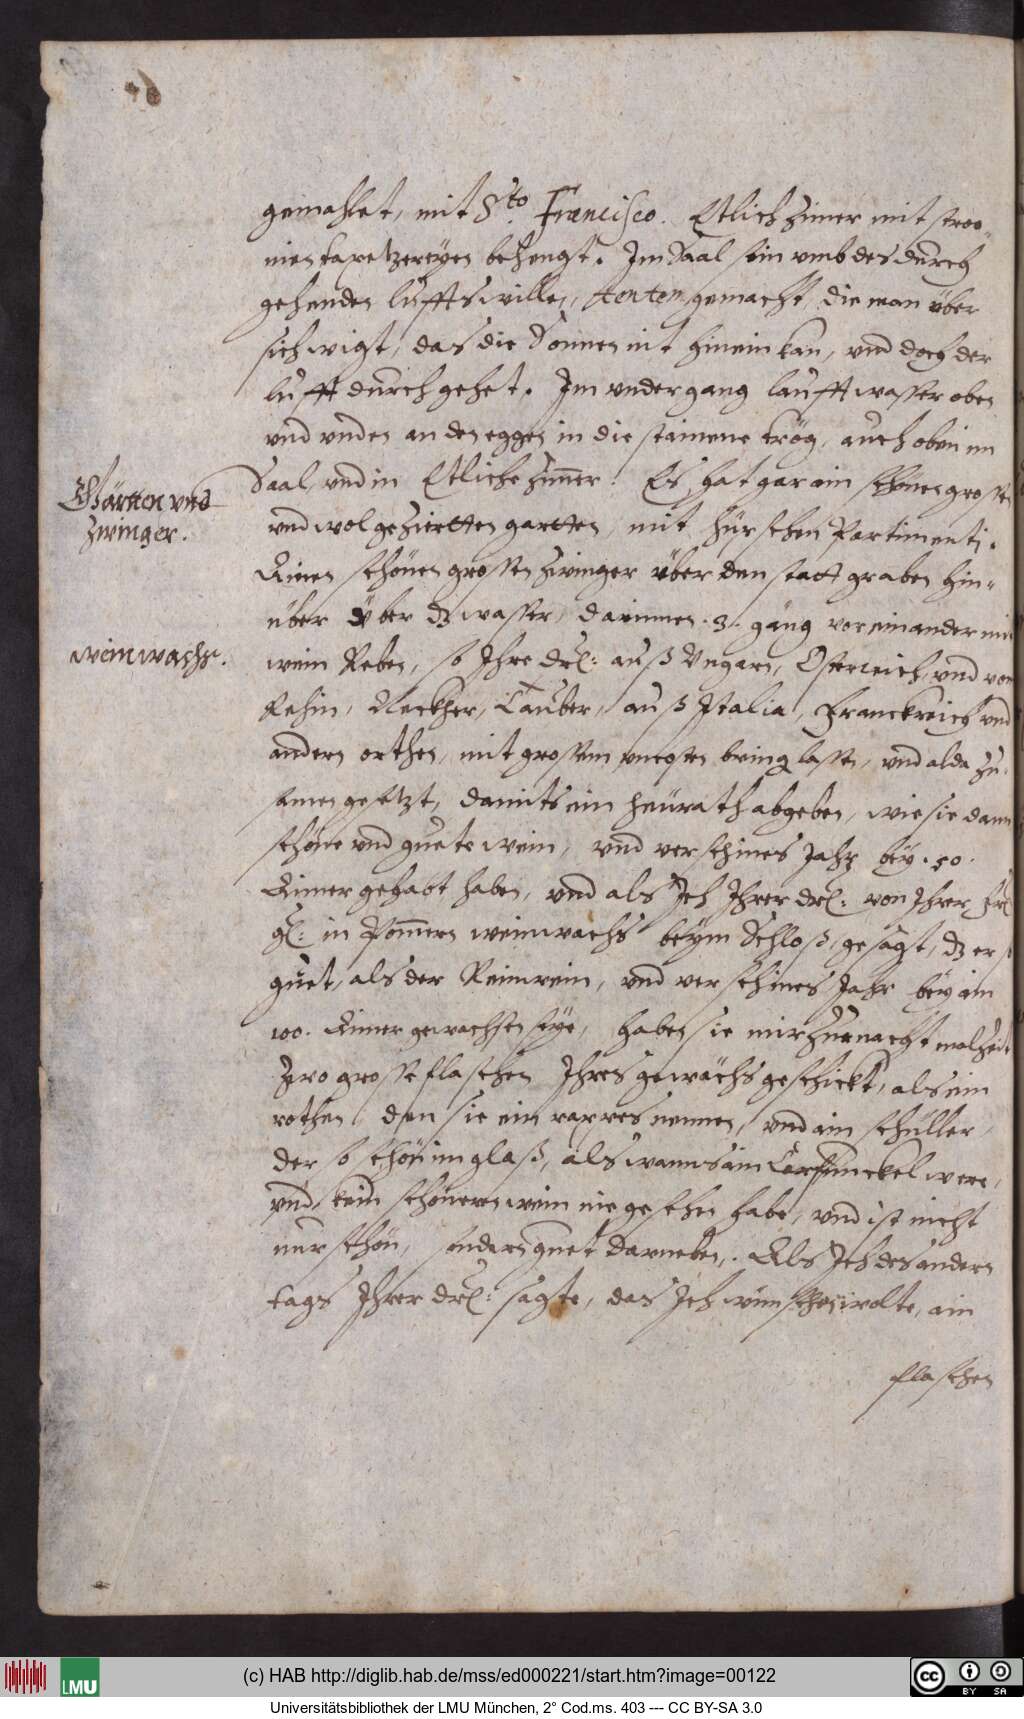 gemahlet, mit S.to Francisco. Etlich Zimer mit stroo-
nien tapetzereyen behengt. Im Saal sein umb des durch
gehenden lufftswillen, tenten gemacht, die man über
sich wigt, das die Sonnen nit hinein kan, und doch der
lufft durchgehet. Im undergang laufft wasser oben
und unden an den eggen in die stainene trög, auch oben im
Saal, und in Etliche Zimer. Es hat gar ain schönen grossen
Gärtten und
Zwinger.
und wol geziertten gartten, mit hürschen Partimenti.
Einen schönen grossen Zwinger über den statt graben hin-
über über dz wasser, darinnen .3. gäng vor einander mit
weinwachs.
wein Reben, so Ihre drl: auß Ungarn, Österreich, und vom
Rehin, Neckher, Tauber, auß Italia, Franckreich und
andern orthen, mit grossem uncosten bring lassen, und alda zu-
samen gesetzt, damits ein heürath abgeben, wie sie dann
schöne und guete wein, und verschines Jahr bey .50.
Eimer gehabt haben, und als Ich Ihrer drl: von Ihrer frl
gl: in Pommern weinwachs beym Schloß, gesagt, dz er so
guet, als der Reinwein, und verschines Jahr bey ain
100. Eimer gewachsen seye, haben sie mir zur nacht malzeit
Zwo grosse flaschen Ihres gewächs geschickt, als ein
rothen, den sie ein rappes nennen, und ain schüller,
der so schön im glaß, als wanns ain Carfunckel were,
und kein schöneren wein nie gesehen habe, und ist nicht
nur schön, sondern guet darneben. Als Ich des andern
tags Ihrer drl: sagte, das Ich wünschen wolte, ain
flaschen
(c) HAB http://diglib.hab.de/mss/ed000221/start.htm?image=00122
LMU
cc BY SA
Universitätsbibliothek der LMU München, 2° Cod.ms. 403 --- CC BY-SA 3.0